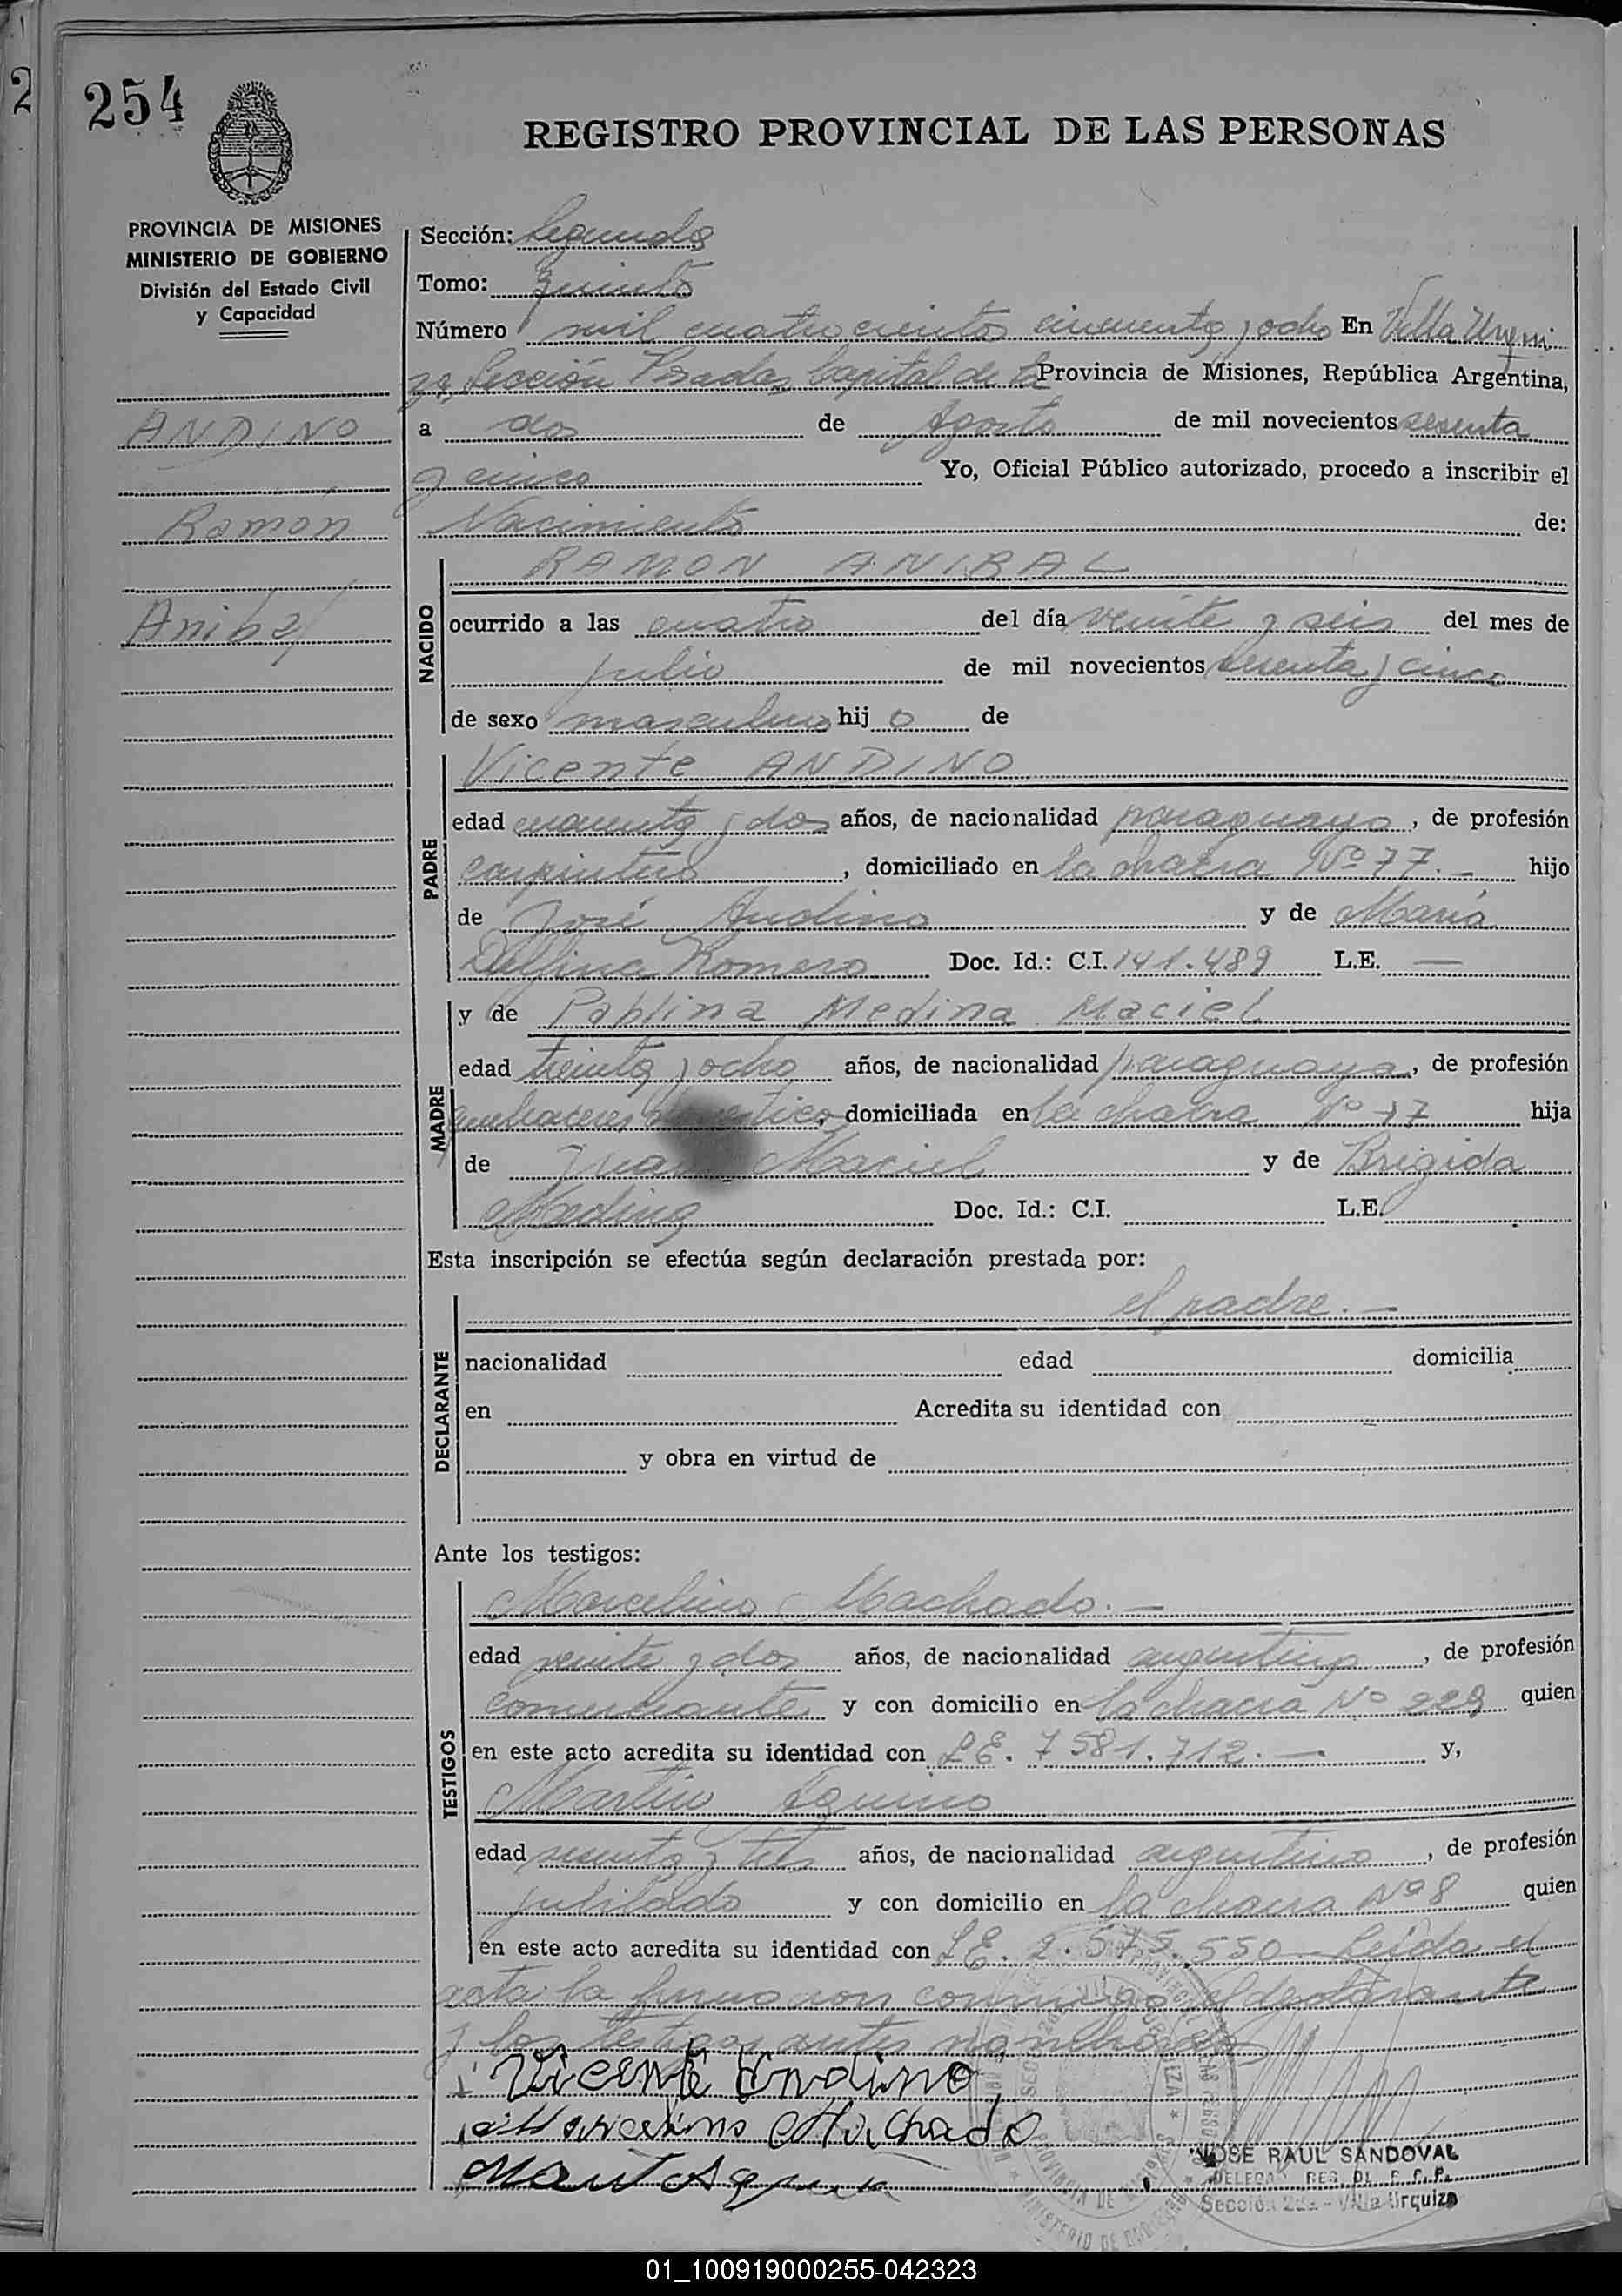 2
254
REGISTRO PROVINCIAL DE LAS PERSONAS
PROVINCIA DE MISIONES
MINISTERIO DE GOBIERNO
División del Estado Civil
y Capacidad
ANDINO
Ramón
Anibal
Sección: Segunda
Tomo: Quinto
Número mil cuatrocientos cincuenta y ocho En Villa Urqui
za, Sección Posadas Capital de la Provincia de Misiones, República Argentina,
a dos de Agosto de mil novecientos sesenta
y cinco Yo, Oficial Público autorizado, procedo a inscribir el
Nacimiento de:
NACIDO
RAMON ANIBAL
ocurrido a las cuatro del día veinte y seis del mes de
julio de mil novecientos sesenta y cinco
de sexo masculino hij o de
PADRE
Vicente ANDINO
edad cuarenta y dos años, de nacionalidad paraguayo, de profesión
carpintero, domiciliado en la chacra Nº 77.- hijo
de José Andino y de María
Delfina Romero Doc. Id.: C.I. 141.489 L.E. —
MADRE
y de Pablina Medina Maciel
edad treinta y ocho años, de nacionalidad paraguaya, de profesión
quehaceres domiciliada en la chacra Nº 77 hija
de Juan Maciel y de Brigida
Medina Doc. Id.: C.I. L.E.
Esta inscripción se efectúa según declaración prestada por:
DECLARANTE
el padre.-
nacionalidad edad domicilia
en Acredita su identidad con
y obra en virtud de
Ante los testigos:
TESTIGOS
Marcelino Machado.-
edad veinte y dos años, de nacionalidad argentino, de profesión
comerciante y con domicilio en la chacra Nº 229 quien
en este acto acredita su identidad con L.E. 7.581.712.- y,
Martin Aquino
edad sesenta y tres años, de nacionalidad argentino, de profesión
jubilado y con domicilio en la chacra Nº 8 quien
en este acto acredita su identidad con L.E. 2.575.550. Leída el
acta la firmaron conmigo el declarante
y los testigos antes nombrados
Vicente Andino
Marcelino Machado
JOSE RAUL SANDOVAL
Sección 2da - Villa Urquiza
01_100919000255-042323